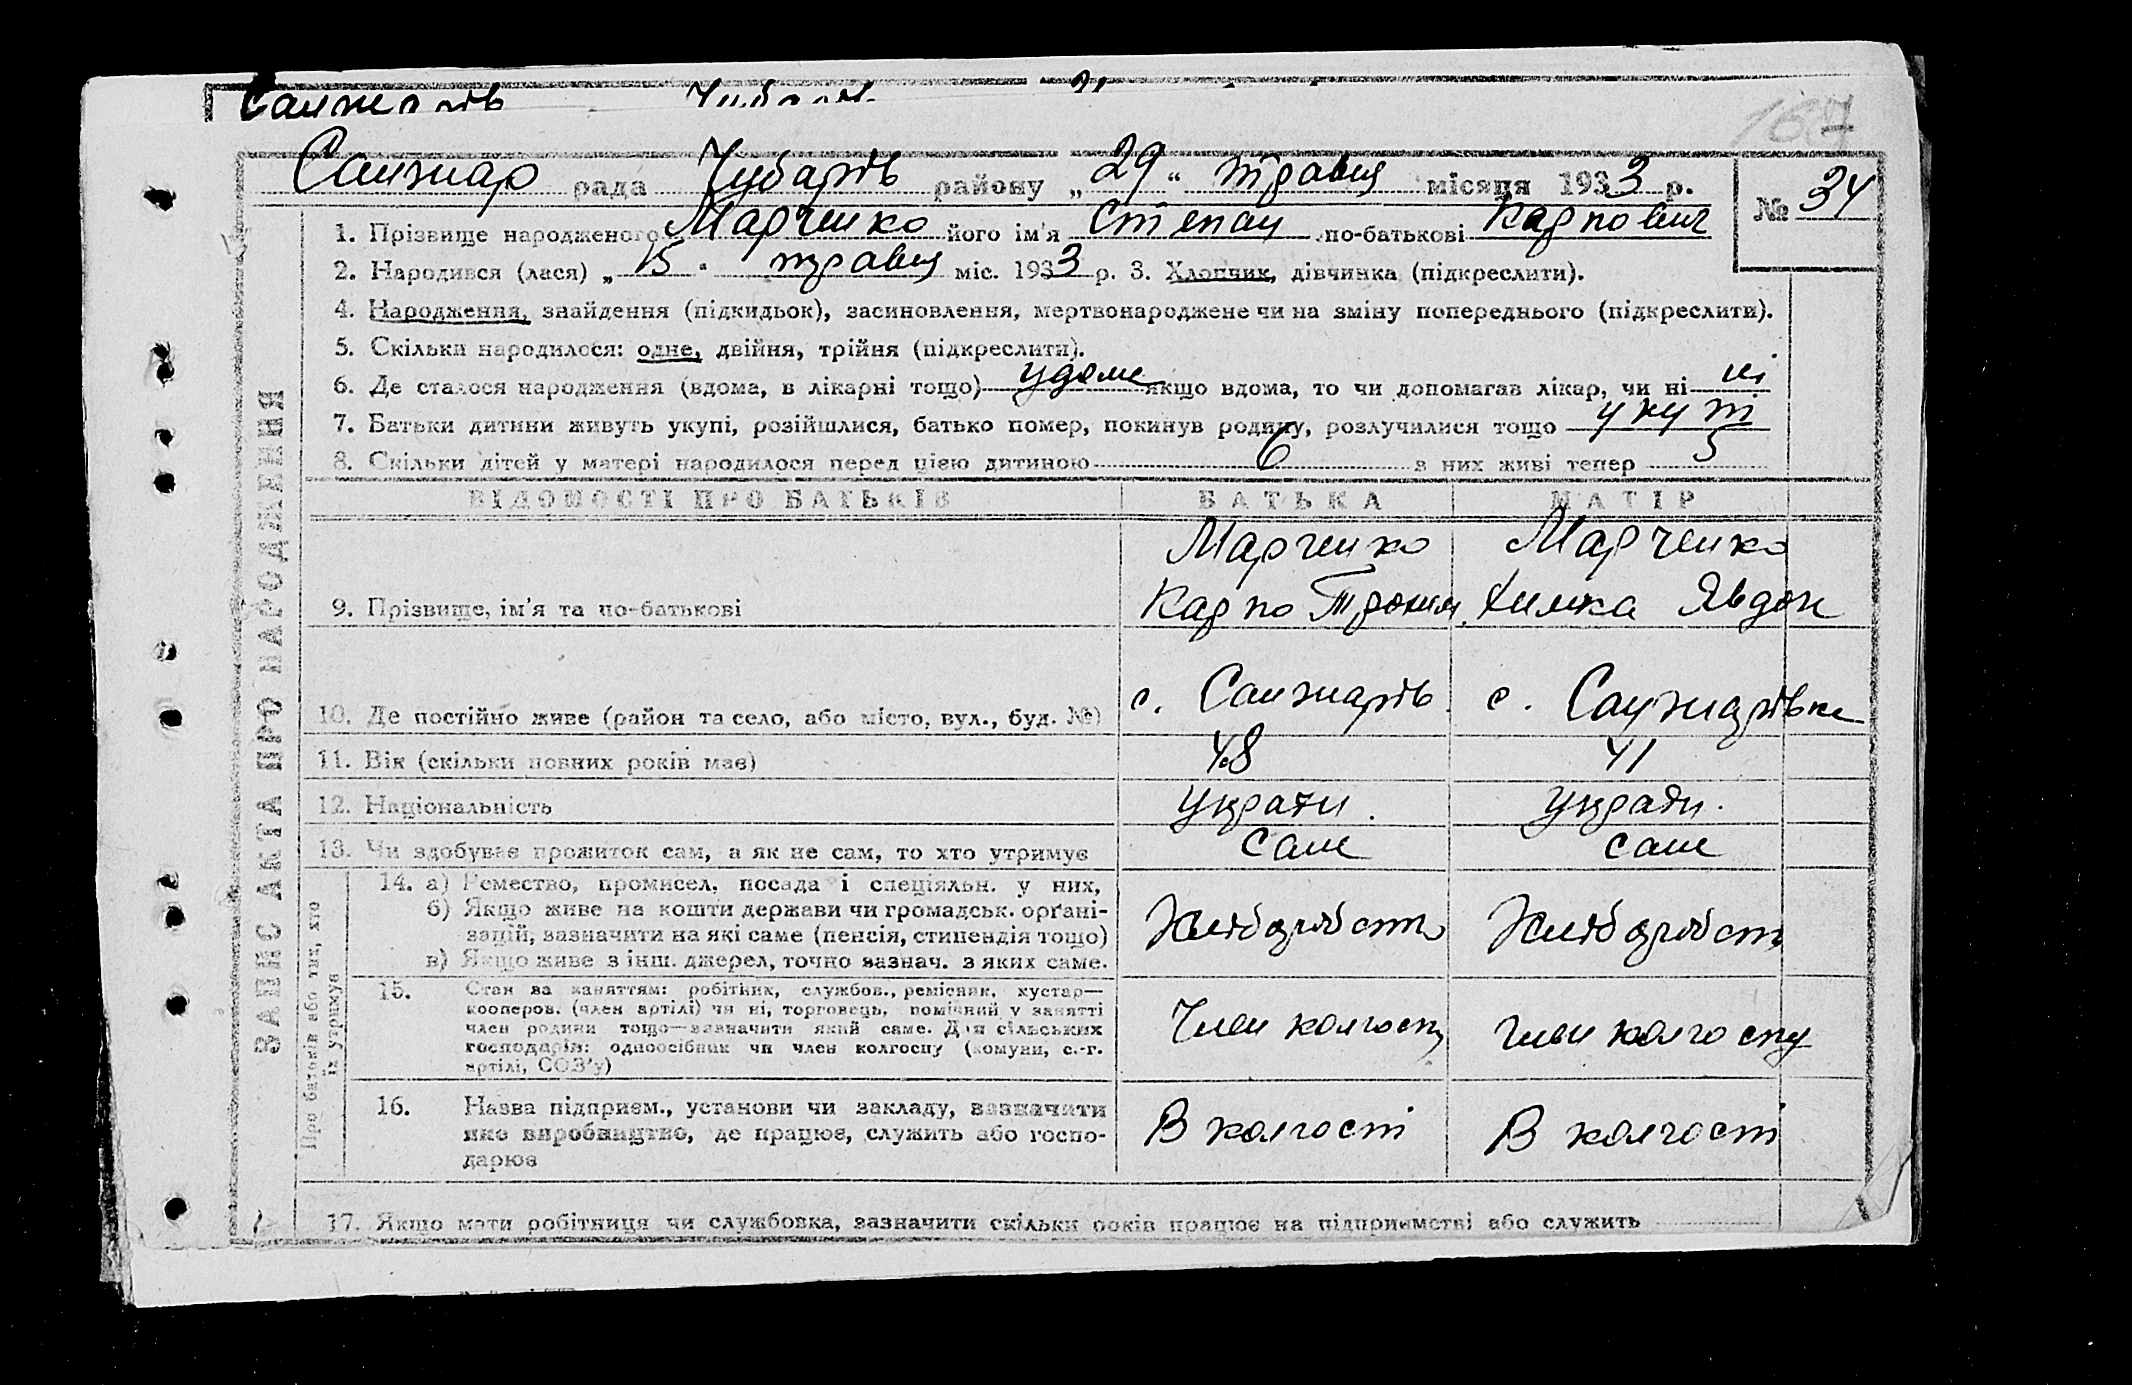 Санжарів
167
Санжар рада Чубарів району „29“ травня місяця 1933 р.
№ 34
1. Прізвище народженого Марченко його ім'я Степан по-батькові Карпович
2. Народився (лася) „15“ травня міс. 1933 р. 3. Хлопчик, дівчинка (підкреслити).
4. Народження, знайдення (підкидьок), засиновлення, мертвонароджене чи на зміну попереднього (підкреслити).
5. Скільки народилося: одне, двійня, трійня (підкреслити).
6. Де сталося народження (вдома, в лікарні тощо) удома якщо вдома, то чи допомагав лікар, чи ні ні
7. Батьки дитини живуть укупі, розійшлися, батько помер, покинув родину, розлучилися тощо укупі
8. Скільки дітей у матері народилося перед цією дитиною 6 з них живі тепер 5
ВІДОМОСТІ ПРО БАТЬКІВ БАТЬКА МАТІР
Марченко Марченко
9. Прізвище, ім'я та по-батькові Карпо Трохим. Химка Явдок
10. Де постійно живе (район та село, або місто, вул., буд. №) с. Санжарів. с. Санжарівка
11. Вік (скільки повних років має) 48 41
12. Національність Украін. Украін.
13. Чи здобуває прожиток сам, а як не сам, то хто утримує сам сам
ЗАПИС АКТА ПРО НАРОДЖЕННЯ
Про батьків або тих, хто їх утримує
14. а) Ремество, промисел, посада і спеціяльн. у них,
б) Якщо живе на кошти держави чи громадськ. орґані-
зацій, зазначити на які саме (пенсія, стипендія тощо)
в) Якщо живе з інш. джерел, точно зазнач. з яких саме.
Хліборобств Хліборобст
15. Стан за заняттям: робітник, службов., ремісник, кустар—
кооперов. (член артілі) чи ні, торговець, помічний у занятті
член родини тощо—зазначити який саме. Для сільських
господарів: одноосібник чи член колгоспу (комуни, с.-г.
артілі, СОЗ'у)
Член колгоспу член колгоспу
16. Назва підприєм., установи чи закладу, зазначити
яке виробництво, де працює, служить або госпо-
дарює
В колгоспі В колгоспі
17. Якщо мати робітниця чи службовка, зазначити скільки років працює на підприємстві або служить